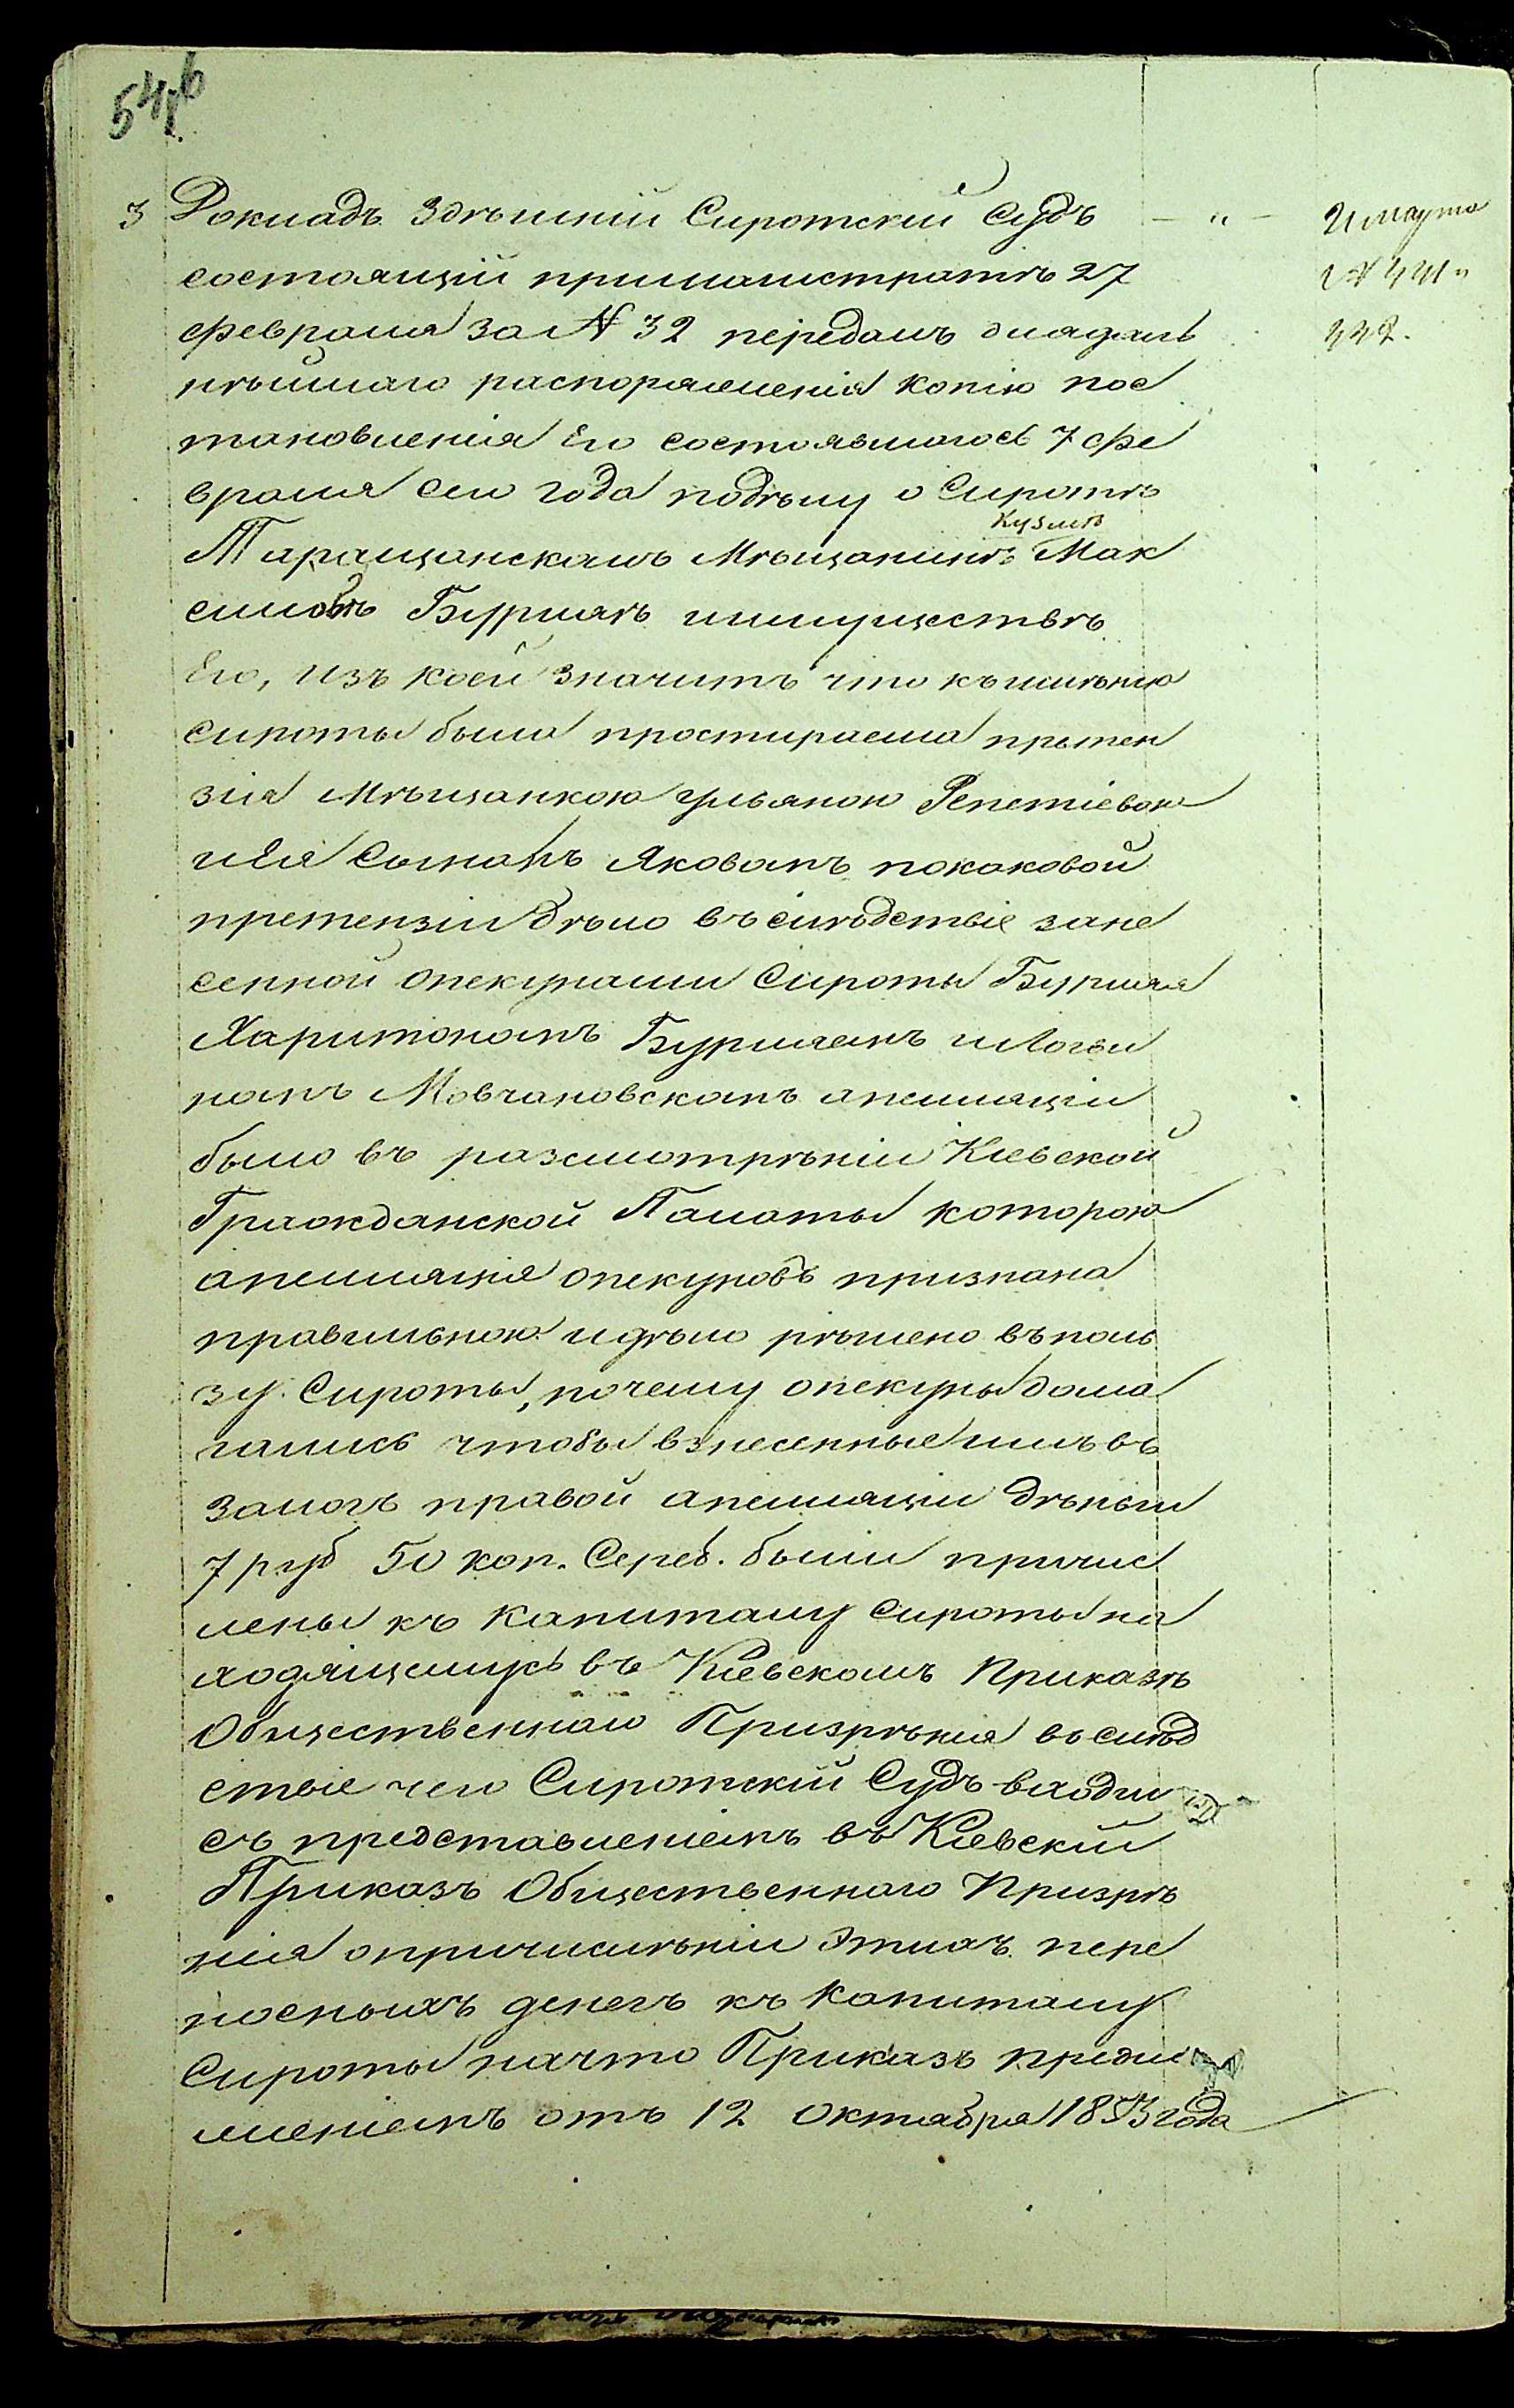 546
3 Докладъ Здѣшній Сиротскій Судъ — „ — 21 марта
состоящій примагистратѣ 27 № 441 и
февраля за № 32 передалъ дляздаль 442.
нѣйшаго распоряженія копію пос
тановленія Его состоявшагось 7 фе
враля сего года подѣлу о Сиротѣ
Кузьмѣ
Таращанскомъ Мѣщанинѣ Мак
симовѣ Бурлаѣ имуществѣ
Его, изъ коей значитъ что къимѣнію
сироты была простираема претен
зія Мѣщанкою Ульяною
иЕя Сыномъ Яковомъ покаковой
претензіи дѣло въслѣдствіе зане
сенной опекунами Сироты Бурлая
Харитономъ Бурлаемъ иЛогви
номъ Мовчановскомъ апелляціи
было въ разсмотрѣніи Кіевской
Гражданской Палаты которою
апелляція опекуновъ признана
правильною идѣло рѣшено въполь
зу Сироты, почему опекуны дома
гались чтобы взнесенные имъ въ
залогъ правой апелляціи дѣньги
7 руб 50 коп. Сереб. были причис
лены къ капиталу сироты на
ходящемусь въ Кіевскомъ Приказѣ
Общественнаго Призрѣнія вьслѣд
ствіе чего Сиротскій Судъ входи
съ представленіемъ въ Кіевскій
Приказъ Общественнаго Призрѣ
нія опричисленіи этихъ пере
носныхъ денегъ къ капиталу
Сироты начто Приказъ предло
женіемъ отъ 12 Октября 1853 года